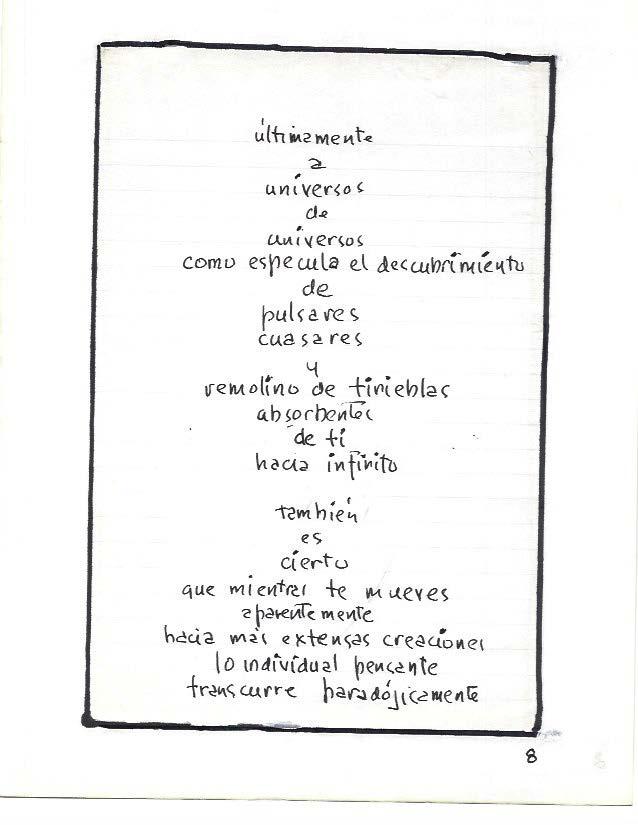 últimamente
a
universos
de
universos
como especula el descubrimiento
de
pulsares
cuasares
y
remolino de tinieblas
absorbentes
de ti
hacia infinito
también
es
cierto
que mientras te mueves
aparentemente
hacia más extensas creaciones
lo individual pensante
transcurre paradójicamente
8